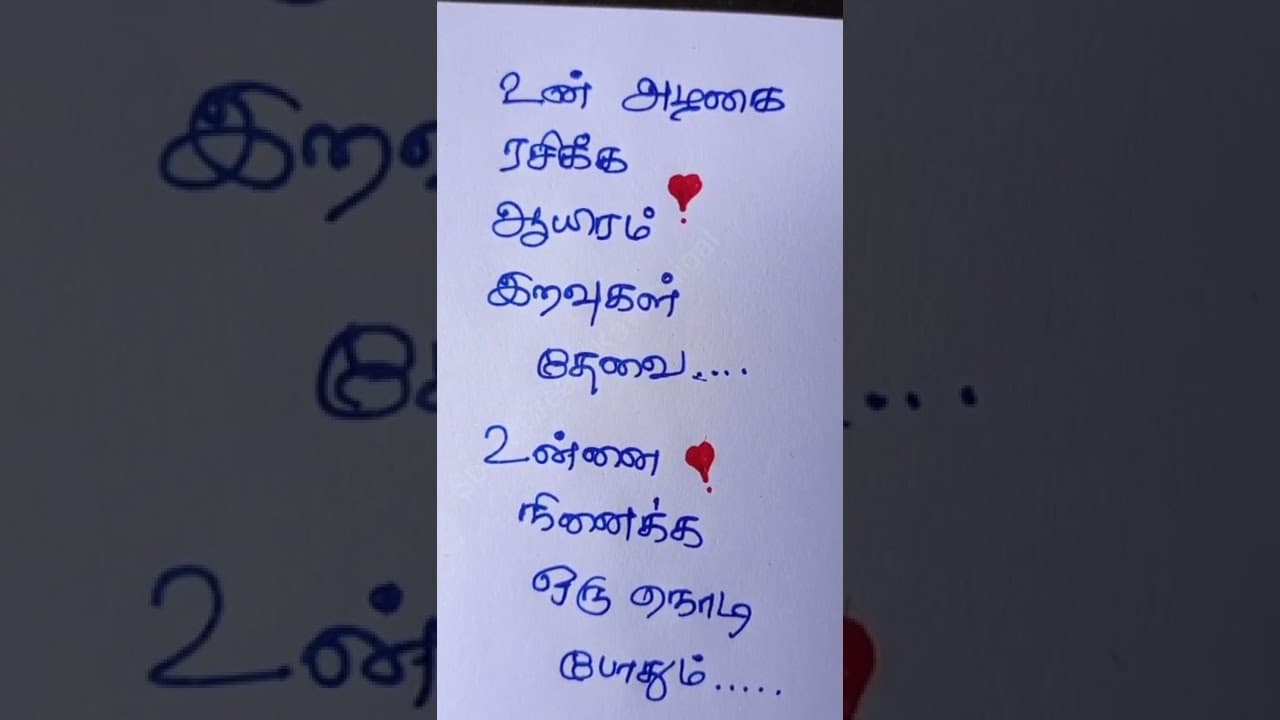 உன் அழகை
ரசிக்க
ஆயிரம்
இரவுகள்
தேவை....
உன்னை
நினைக்க
ஒரு நொடி
போதும்.....